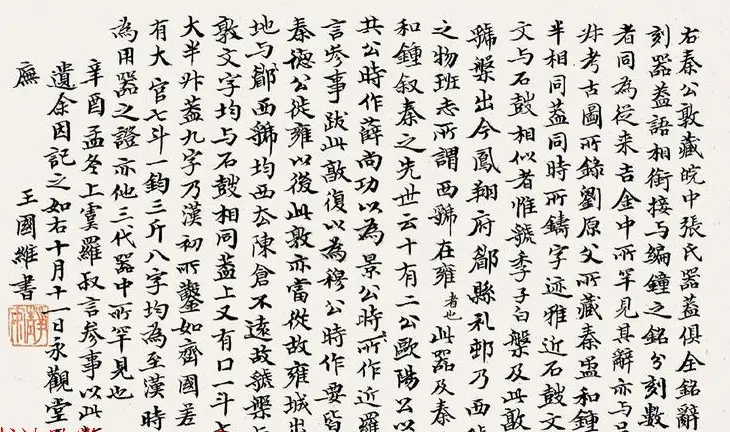 右秦公敦藏皖中張氏器蓋俱全銘辭
刻器蓋語相銜接与編鐘之銘分刻數
者同為從来吉金中所罕見其辭亦与
考古圖所錄劉原父所藏秦盄和鐘
半相同蓋同時所鑄字迹雅近石鼓文
文与石鼓相似者惟虢季子白槃及此敦
虢槃出今鳳翔府郿縣礼邨乃西虢
之物班志所謂西虢在雍者也此器及秦
和鐘叙秦之先世云十有二公歐陽公以
共公時作薛尚功以為景公時所作近羅
言参事跋此敦復以為穆公時作要皆
秦德公徙雍以後此敦亦當從故雍城出
地与郿西虢均西去陳倉不遠故虢槃与
敦文字均与石鼓相同蓋上又有口一斗七
大半升蓋九字乃漢初所鑿如齊國差
有大官七斗一鈞三斤八字均為至漢時
為用器之證亦他三代器中所罕見也
辛酉孟冬上虞羅叔言参事以此
遺余因記之如右十月十一日永觀堂
廡 王國維書